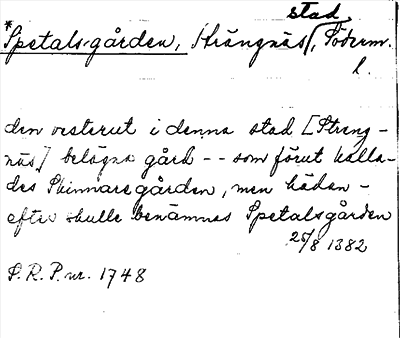 stad
*Spetalsgården, Strängnäs, Söderm.
l.
den vesterut i denna stad [Streng-
näs] belägna gård -- som förut kalla-
des Skinnaregården, men hädan-
efter skulle benämnas Spetalsgården
25/8 1382
S.R.P. nr. 1748